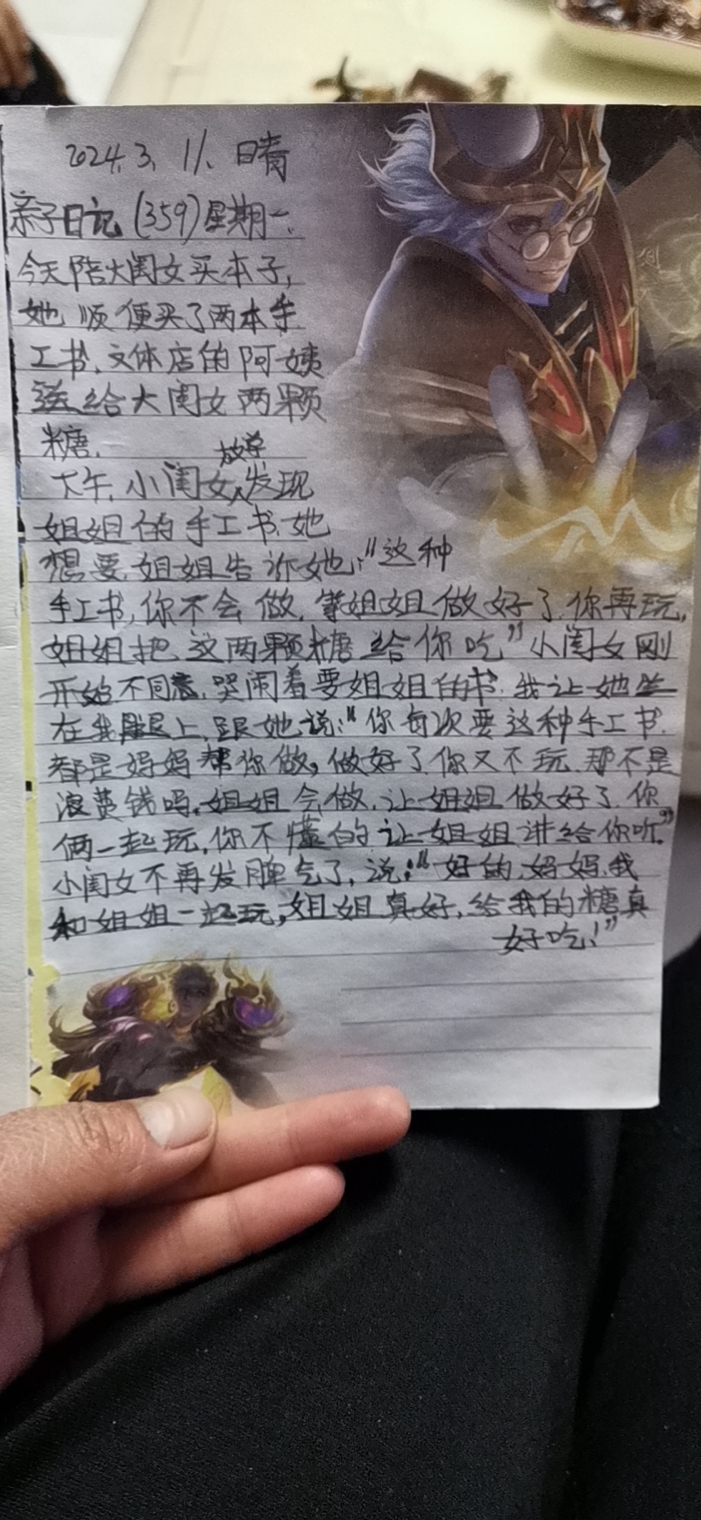 2024.3.11.晴
亲子日记(359)星期一.
今天陪大闺女买本子,
她顺便买了两本手
工书.文体店的阿姨
送给大闺女两颗
糖.
下午,小闺女放学发现
姐姐的手工书.她
想要.姐姐告诉她:"这种
手工书,你不会做.等姐姐做好了.你再玩,
姐姐把这两颗糖给你吃"小闺女刚
开始不同意.哭闹着要姐姐的书.我让她坐
在我腿上.跟她说:"你每次要这种手工书.
都是妈妈帮你做,做好了你又不玩.那不是
浪费钱吗.姐姐会做.让姐姐做好了.你
俩一起玩.你不懂的让姐姐讲给你听."
小闺女不再发脾气了,说:"好的.妈妈.我
和姐姐一起玩,姐姐真好.给我的糖真
好吃!"